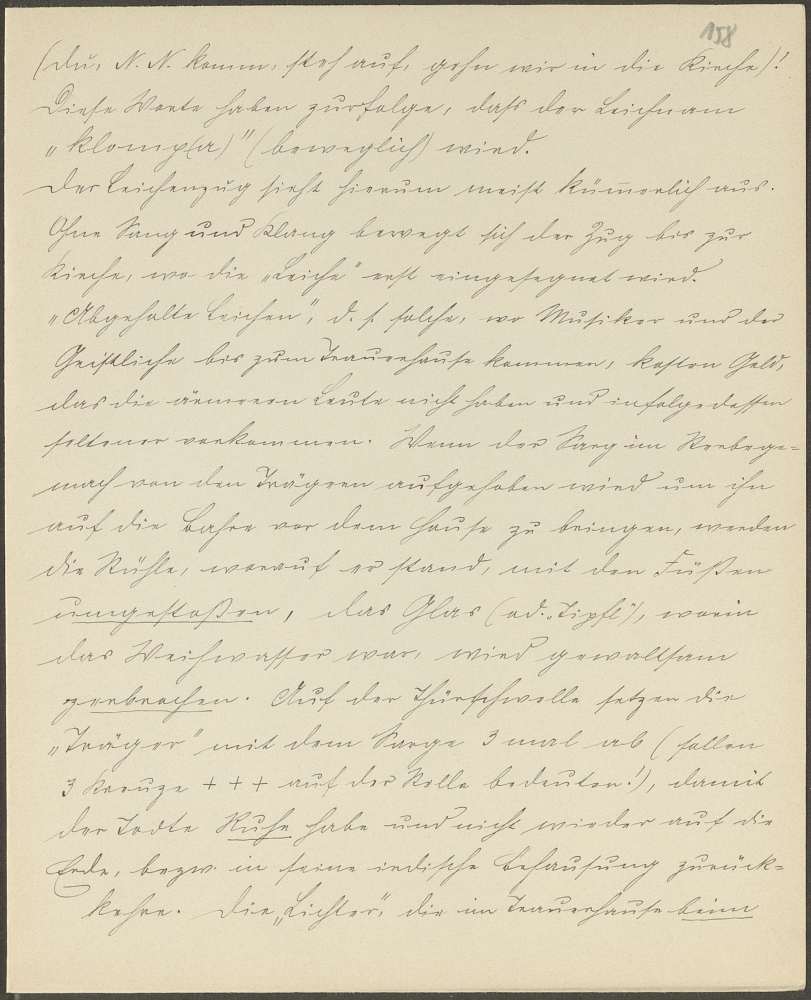 158
(du, N. N. komm, steh auf, gehn wir in die Kirche)!
Diese Worte haben zurfolge, daß der Leichnam
„klomp(a)" (beweglich) wird.
Der Leichenzug sieht hierum meist küm̅erlich aus.
Ohne Sang und Klang bewegt sich der Zug bis zur
Kirche, wo die „Leiche" erst eingesegnet wird.
„Abgeholte Leichen", d. s. solche, wo Musiker und der
Geistliche bis zum Trauerhause kommen, kosten Geld,
das die ärmeren Leute nicht haben und infolgedessen
seltener vorkommen. Wenn der Sarg im Sterbege=
mach von den Trägern aufgehoben wird um ihn
auf die Bahre vor dem Hause zu bringen, werden
die Stühle, worauf er stand, mit den Füßen
umgestoßen, das Glas (od. „Tipfl"), worin
das Weihwasser war, wird gewaltsam
zerbrochen. Auf der Thürschwelle setzen die
„Träger" mit dem Sarge 3 mal ab (sollen
3 Kreuze + + + auf der Stelle bedeuten!), damit
der Todte Ruhe habe und nicht wieder auf die
Erde, bezw. in seine irdische Behausung zurück=
kehre. Die „Lichter", die im Trauerhause beim